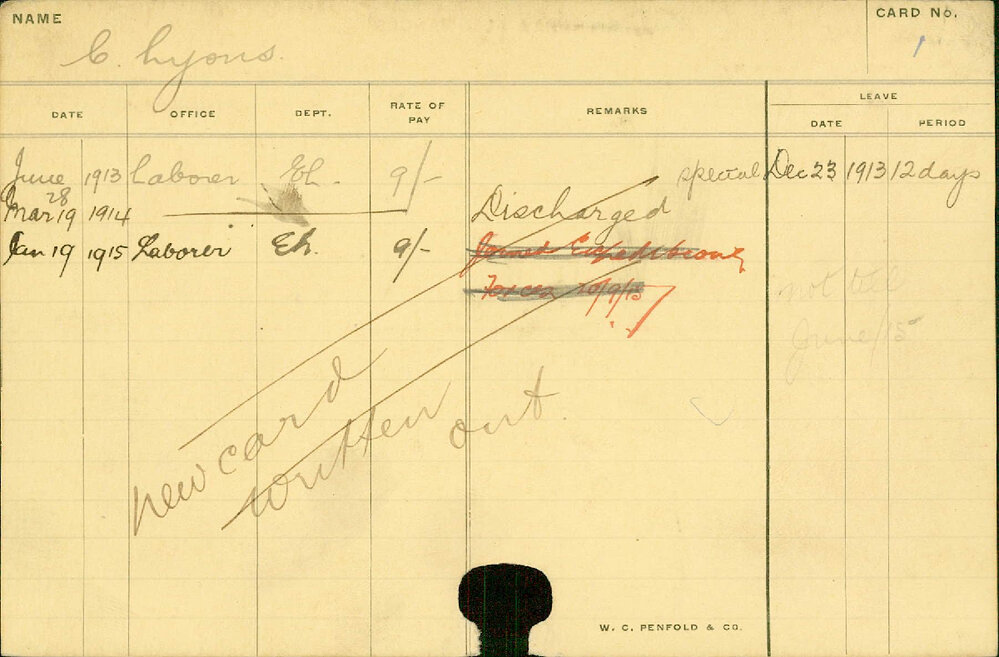 NAME
CARD No.
C. Lyons.
1
DATE OFFICE DEPT. RATE OF PAY REMARKS LEAVE
DATE PERIOD
June 1913 Laborer Eh. 9/- special Dec 23 1913 12 days
28
Mar 19 1914 Discharged
Jan 19 1915 Laborer Eh. 9/- Joined Expeditionary
Forces 10/9/15
not till
June/15
new card
written
out.
W. C. PENFOLD & CO.